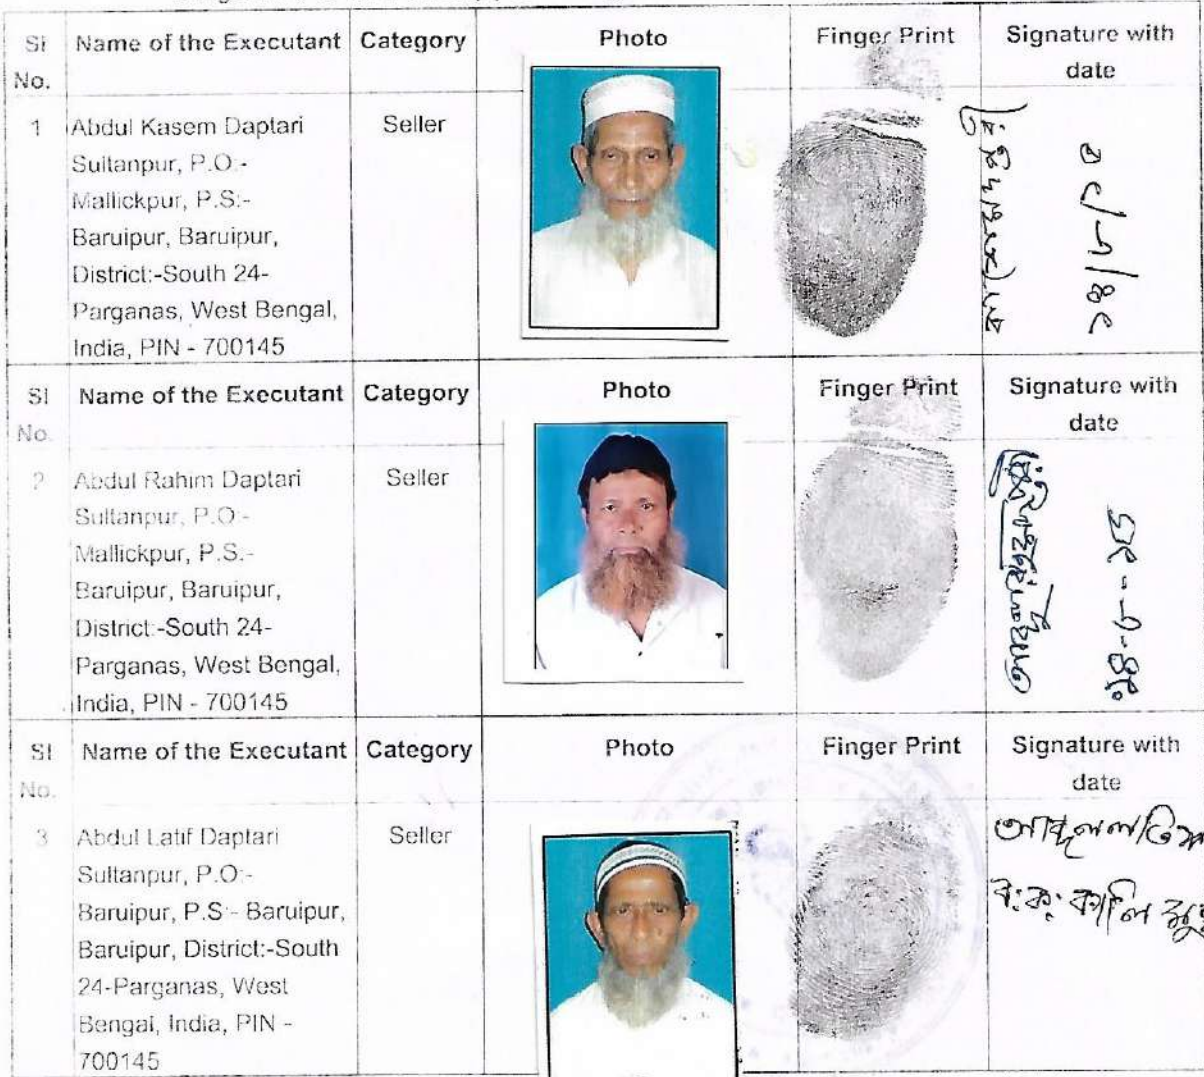 Sl No. Name of the Executant Category Photo Finger Print Signature with date
1 Abdul Kasem Daptari Seller
Sultanpur, P.O:-
Mallickpur, P.S:-
Baruipur, Baruipur,
District:-South 24-
Parganas, West Bengal,
India, PIN - 700145
Sl No. Name of the Executant Category Photo Finger Print Signature with date
2 Abdul Rahim Daptari Seller
Sultanpur, P.O:-
Mallickpur, P.S:-
Baruipur, Baruipur,
District:-South 24-
Parganas, West Bengal,
India, PIN - 700145
Sl No. Name of the Executant Category Photo Finger Print Signature with date
3 Abdul Latif Daptari Seller
Sultanpur, P.O:-
Baruipur, P.S:- Baruipur,
Baruipur, District:-South
24-Parganas, West
Bengal, India, PIN -
700145